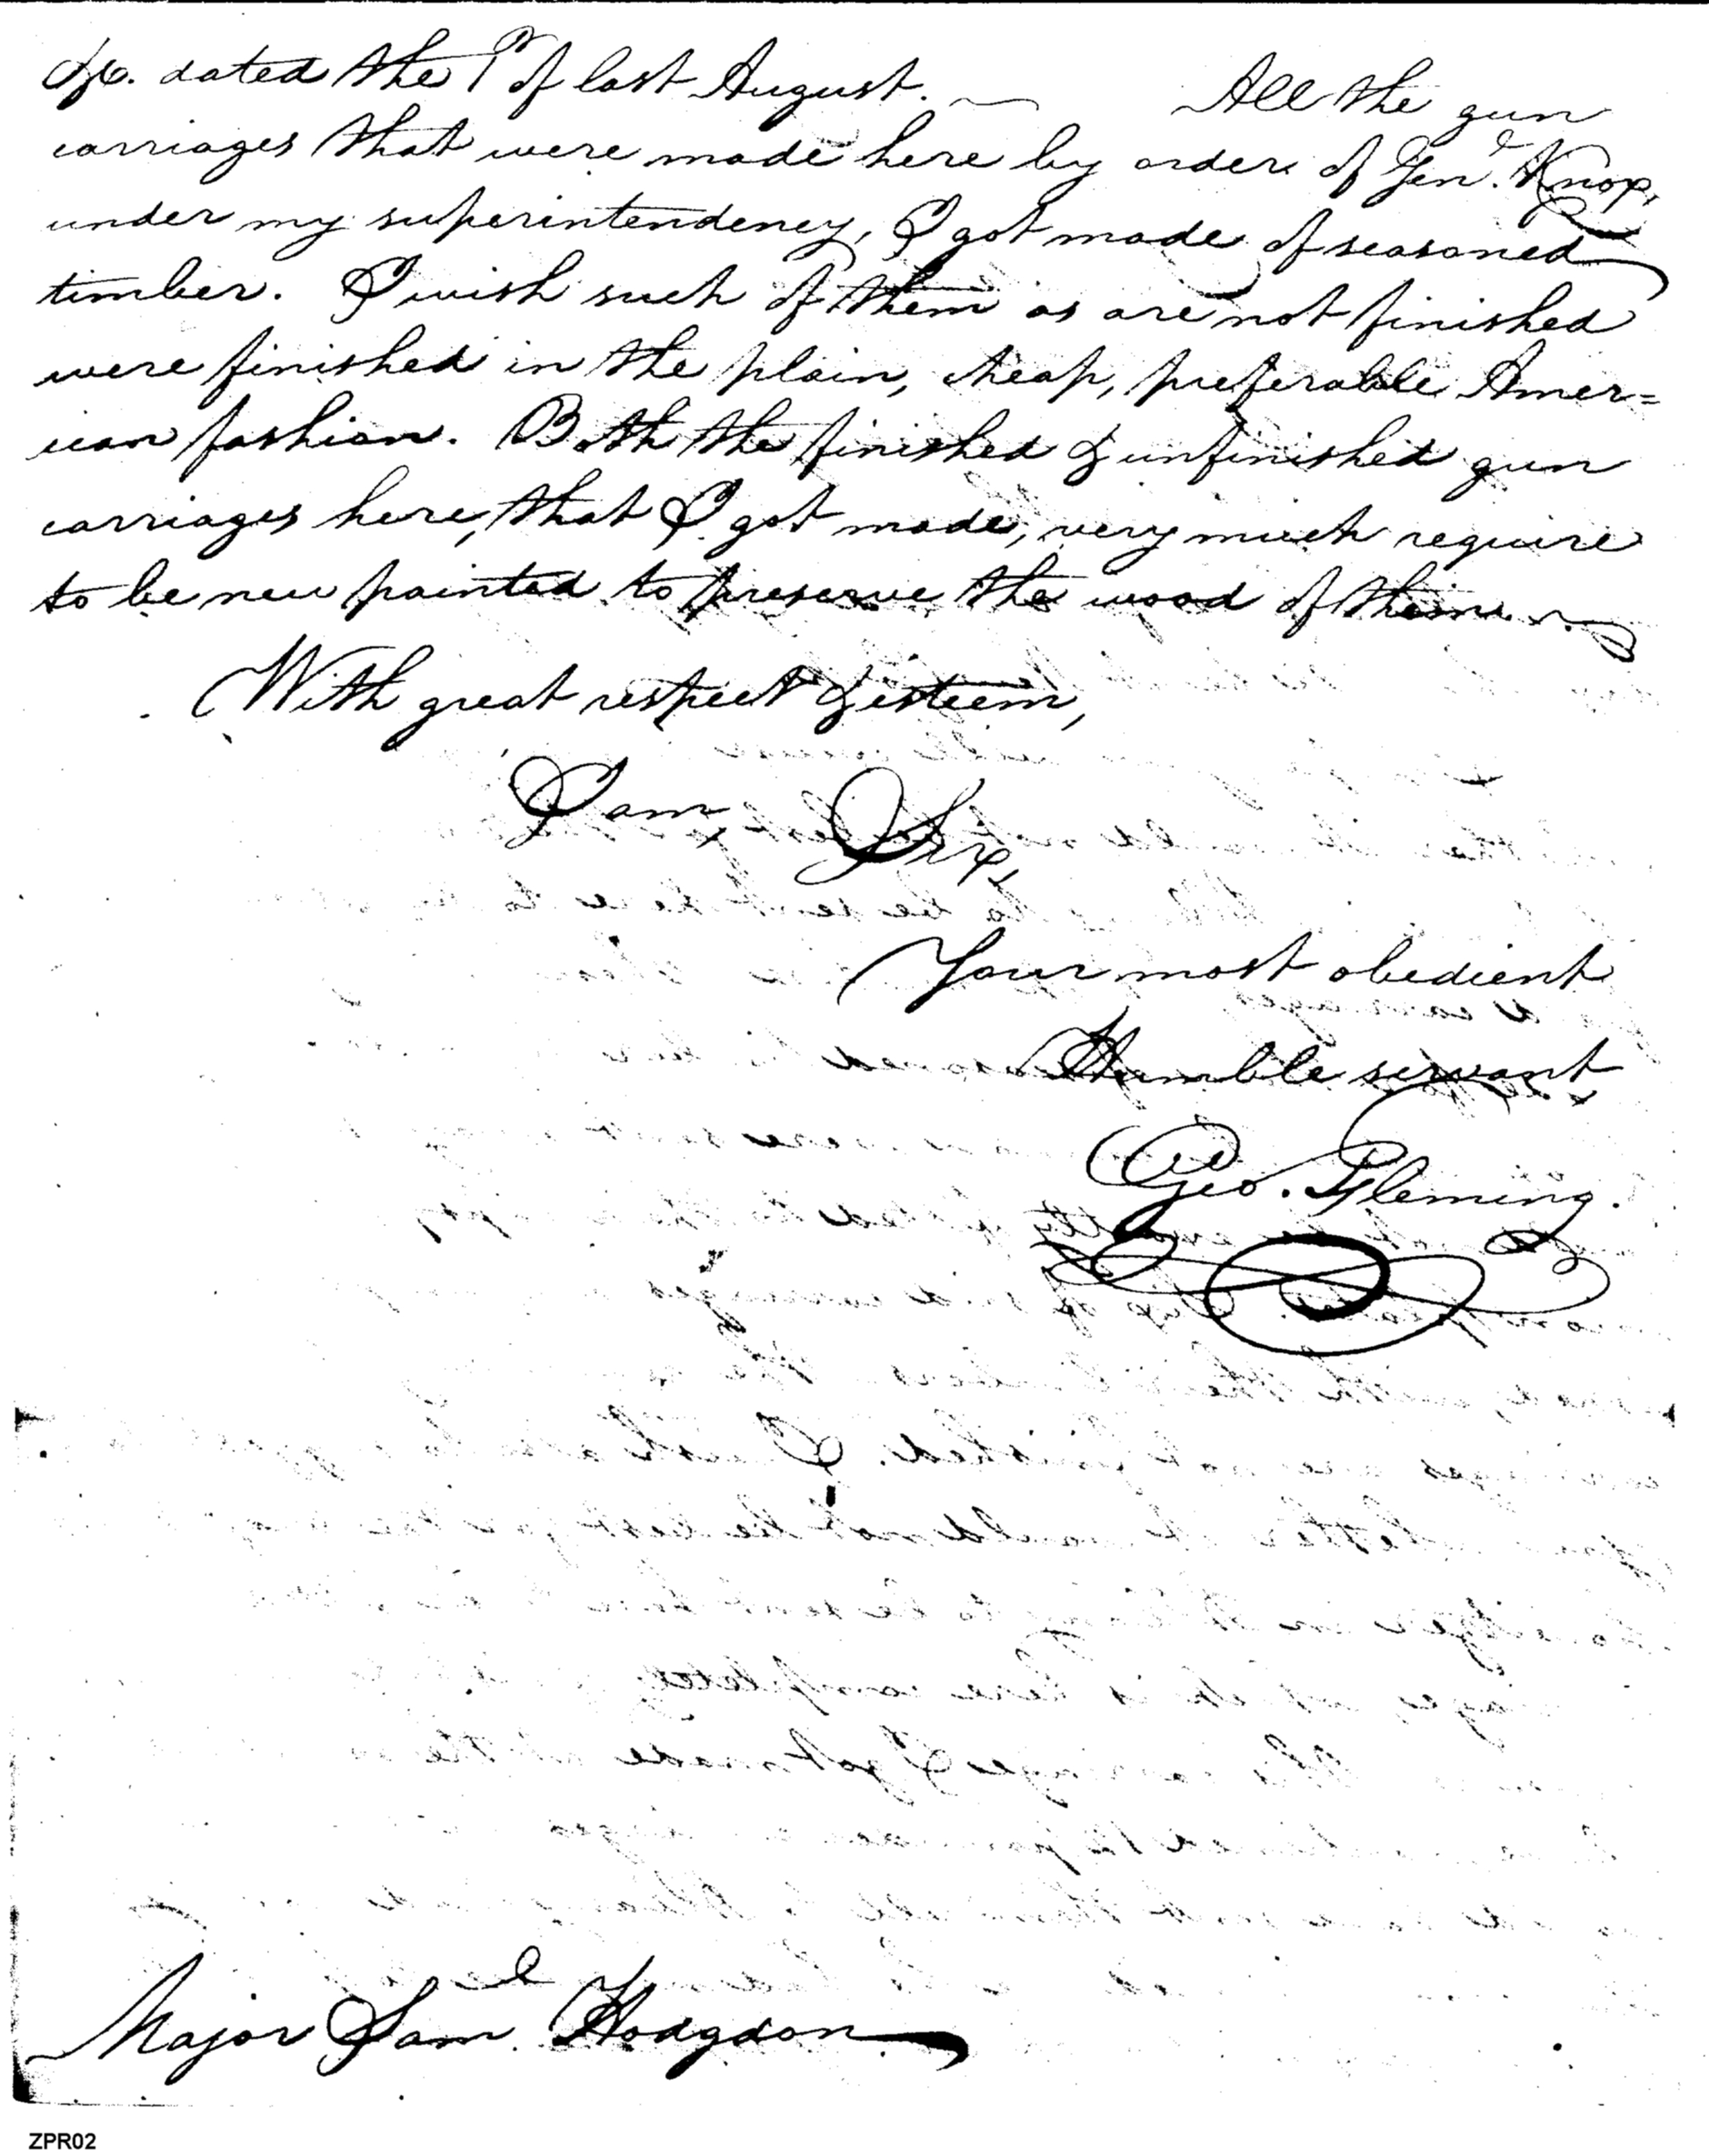 &c. dated the 1st of last August. All the gun
carriages that were made here by order of Genl. Knox,
under my superintendency, I got made of seasoned
timber. I wish such of them as are not finished
were finished in the plain, cheap, preferable Amer=
ican fashion. Both the finished & unfinished gun
carriages here, that I got made, very much require
to be new painted to preserve the wood of them.
With great respect & esteem,
I am Sir,
Your most obedient
Humble servant
Geo. Fleming.
Major Saml. Hodgdon
ZPR02